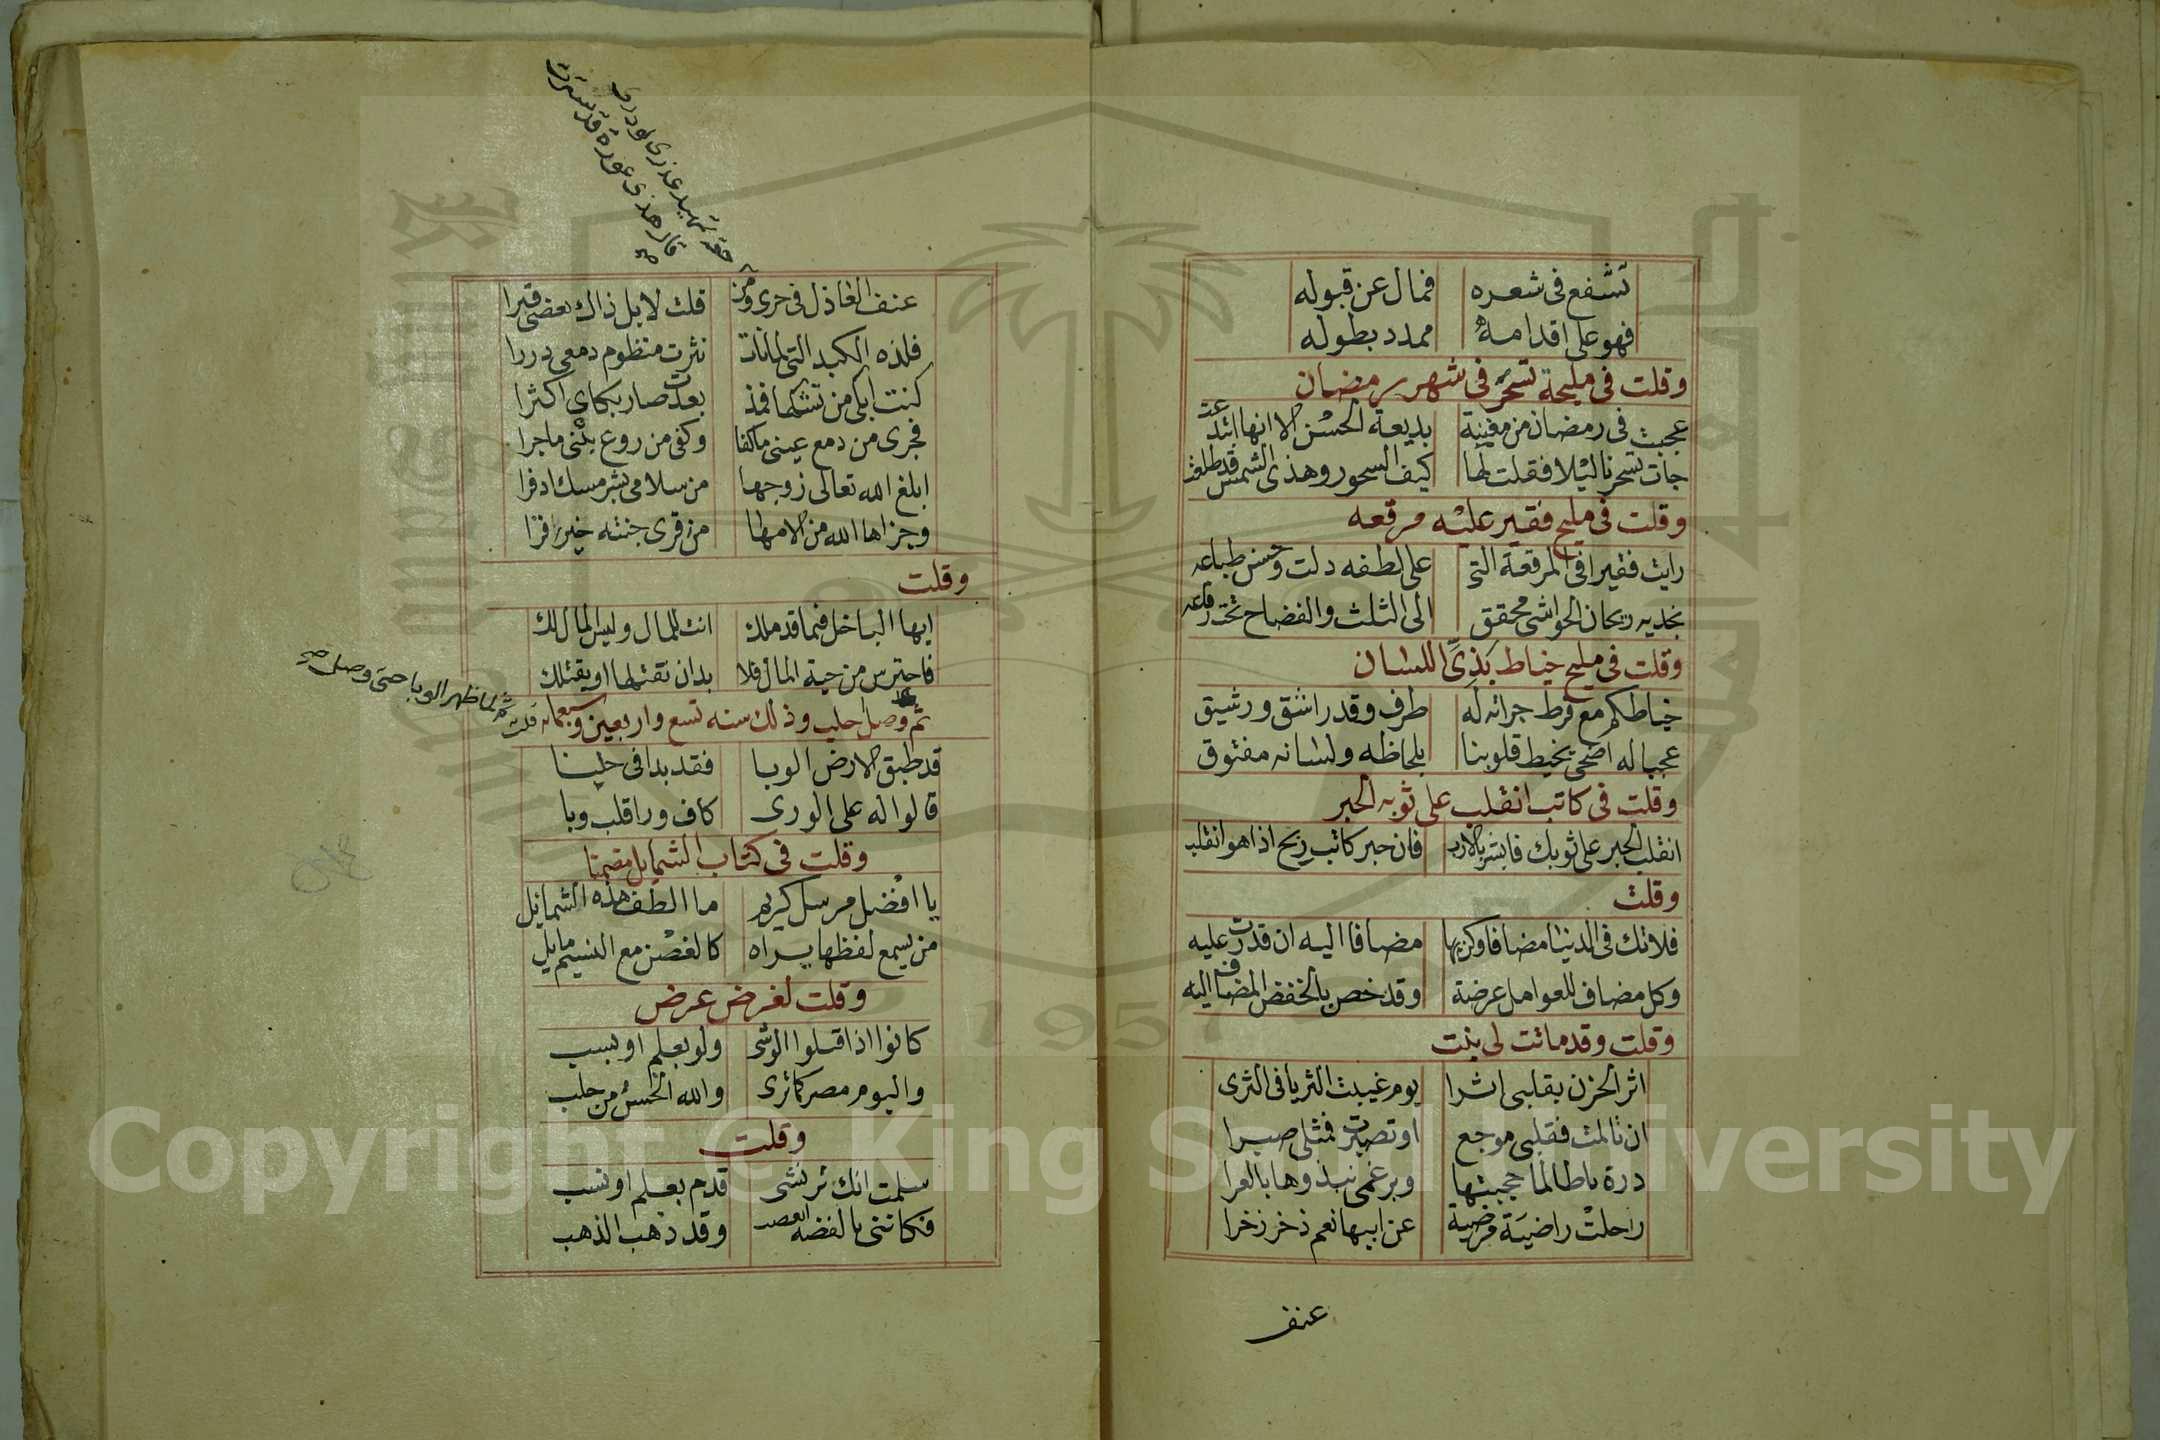 تشفع فى شعره فمال عن قبوله
فهو على اقدامه ممدد بطوله
وقلت فى مليحة تسحر فى شهر رمضان
عجبت فى رمضان من مغنية بديعة الحسن الا انها ابتدعت
جات تسحرنا ليلا فقلت لها كيف السحور وهذى الشمس قد طلعت
وقلت فى مليح فقير عليه مرقعه
رايت فقيرا فى المرقعة التى على لطفه دلت وحسن طباعه
بخديه ريحان الحواشى محقق الى الثلث والفضاح تحت رقاعه
وقلت فى مليح خياط بذى اللسان
خياطكم مع فرط جرائه له طرف وقد راشق ورشيق
عجبا له اضحى يخيط قلوبنا بلحاظه ولسانه مفتوق
وقلت فى كاتب انقلب على ثوبه الحبر
انقلب الحبر على ثوبك فابشر بالارب فان حبر كاتب ربح اذا هو انقلب
وقلت
فلاتك فى الدنيا مضافا وكن بها مضافا اليه ان قدرت عليه
وكل مضاف للعوامل عرضة وقد خص بالخفض المضاف اليه
وقلت وقد ماتت لى بنت
اثر الحزن بقلبى اثرا يوم غيبت الثريا فى الثرى
ان تالمت فقلبى موجع او تصبرت فمثلى صبرا
درة ياطالما حجبتها وبرغمى نبذوها بالعرا
راحلت راضية مرضية عن ابيها نعم ذخر ذخرا
عنف
عنف العاذل فى حزى ومن قلت لا بل ذاك بعضى قبرا
فلذه الكبد التى لمانات نثرت منظوم دمعى دررا
كنت ابكى من تشكيها فمذ بعدت صار بكاى اكثرا
فجرى من دمع عينى ماكفا وكفى من روع بينى ماجرا
ابلغ الله تعالى زوجها من سلامى بشر مسك اذفرا
وجزاها الله من الامها من قرى جنته خير
وقلت
ايها الباخل فيما قد ملك انت للمال وليس المال لك
فاحترس من حية المال فلا بد ان تقتلها او يقتلك
لما ظهر الوبا حتى وصل
ثم وصل حلب وذلك سنه تسع واربعين وسبعمائه قلت
قد طبق الارض الوبا فقد بدا فى حلبنا
قالوا له على الورى كاف ورا قلب وبا
وقلت فى كتاب الشمايل مضمنا
يا افضل مرسل كريم ما الطف هذه الشمائل
من يسمع لفظها يراه كالغصن مع النسيم مايل
وقلت لغرض عرض
كانوا اذا قبلوا الرشى ولو بعلم او نسب
واليوم مصر كما ترى والله احسن من حلب
وقلت
سلمت انك ترتشى قدم بعلم او نسب
فكاننى بالفضه وقد ذهب الذهب
Copyright © King Saud University
1957